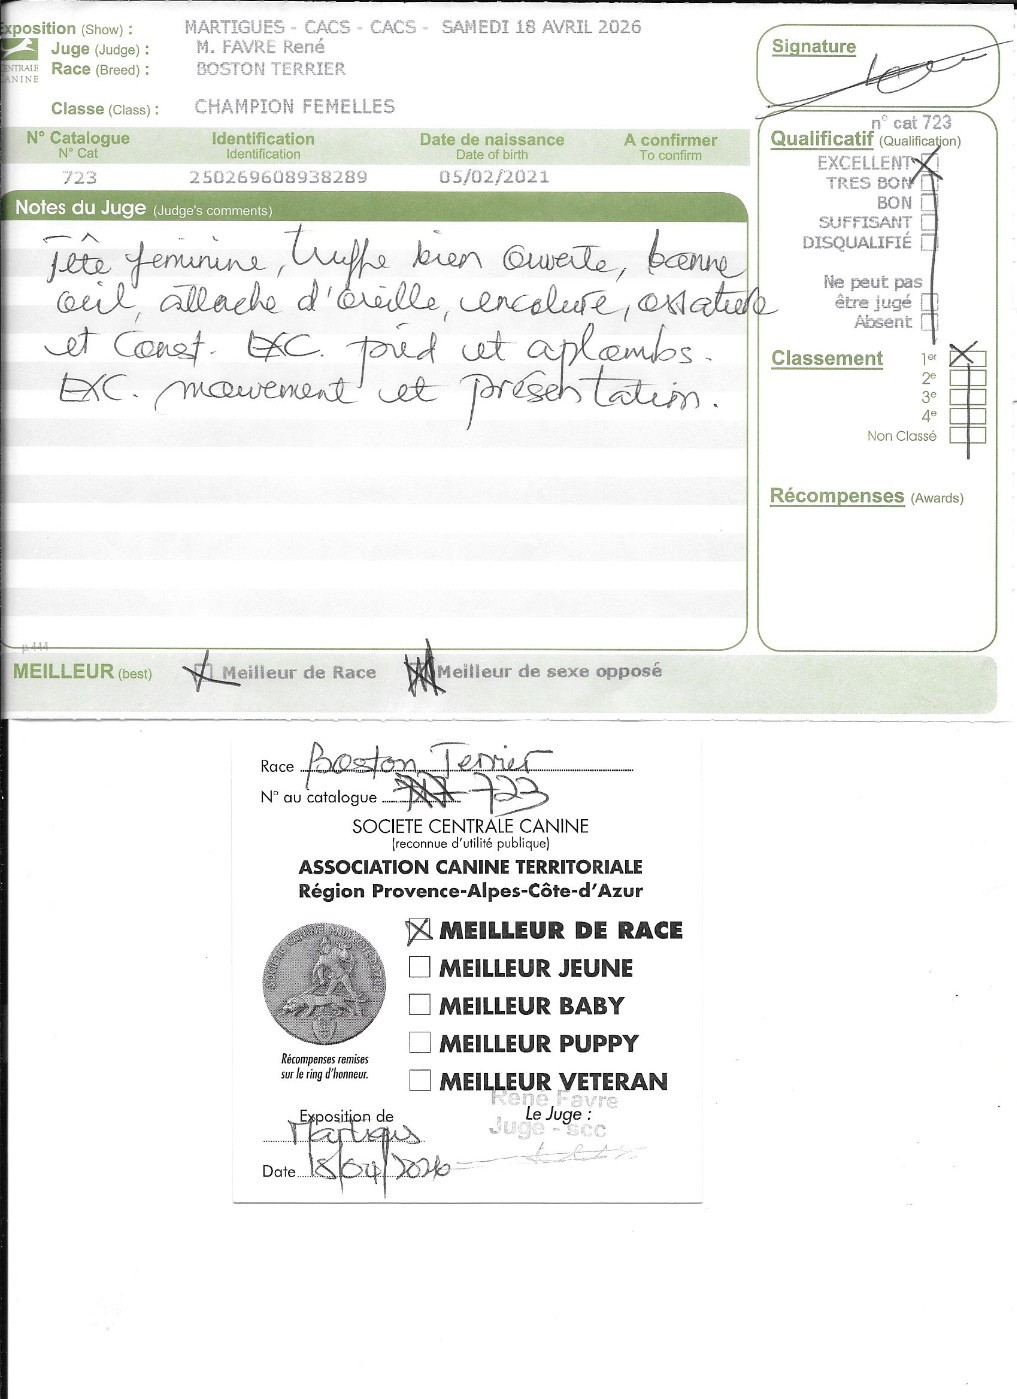 Exposition (Show) : MARTIGUES - CACS - CACS - SAMEDI 18 AVRIL 2026
Juge (Judge) : M. FAVRE René
Race (Breed) : BOSTON TERRIER
CENTRALE
CANINE
Classe (Class) : CHAMPION FEMELLES
Signature
N° Catalogue Identification Date de naissance A confirmer
N° Cat Identification Date of birth To confirm
723 250269608938289 05/02/2021
Notes du Juge (Judge's comments)
Tête féminine, truffe bien ouverte, bonne
oeil, attache d'oreille, encolure, ossature
et Const. EXC. pied et aplombs.
EXC. mouvement et présentation.
n° cat 723
Qualificatif (Qualification)
EXCELLENT
TRES BON
BON
SUFFISANT
DISQUALIFIÉ
Ne peut pas
être jugé
Absent
Classement 1er
2e
3e
4e
Non Classé
Récompenses (Awards)
p.444
MEILLEUR (best) Meilleur de Race Meilleur de sexe opposé
Race Boston Terrier
N° au catalogue 723
SOCIETE CENTRALE CANINE
(reconnue d'utilité publique)
ASSOCIATION CANINE TERRITORIALE
Région Provence-Alpes-Côte-d'Azur
MEILLEUR DE RACE
MEILLEUR JEUNE
MEILLEUR BABY
MEILLEUR PUPPY
MEILLEUR VETERAN
Récompenses remises
sur le ring d'honneur.
René Favre
Juge - scc
Exposition de Le Juge :
Martigues
Date 18/04/2026